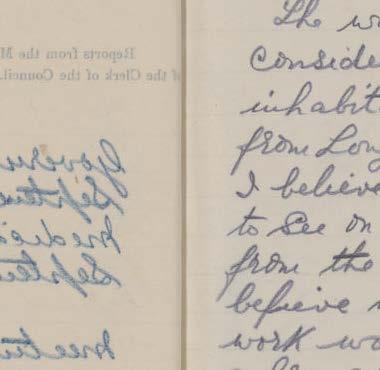 Reports from the M
of the Clerk of the Council.
Govern
Septem
Medic
Septem
meetin
The w
conside
inhabit
from Long
I believe
to see on
from the
believe
work wo